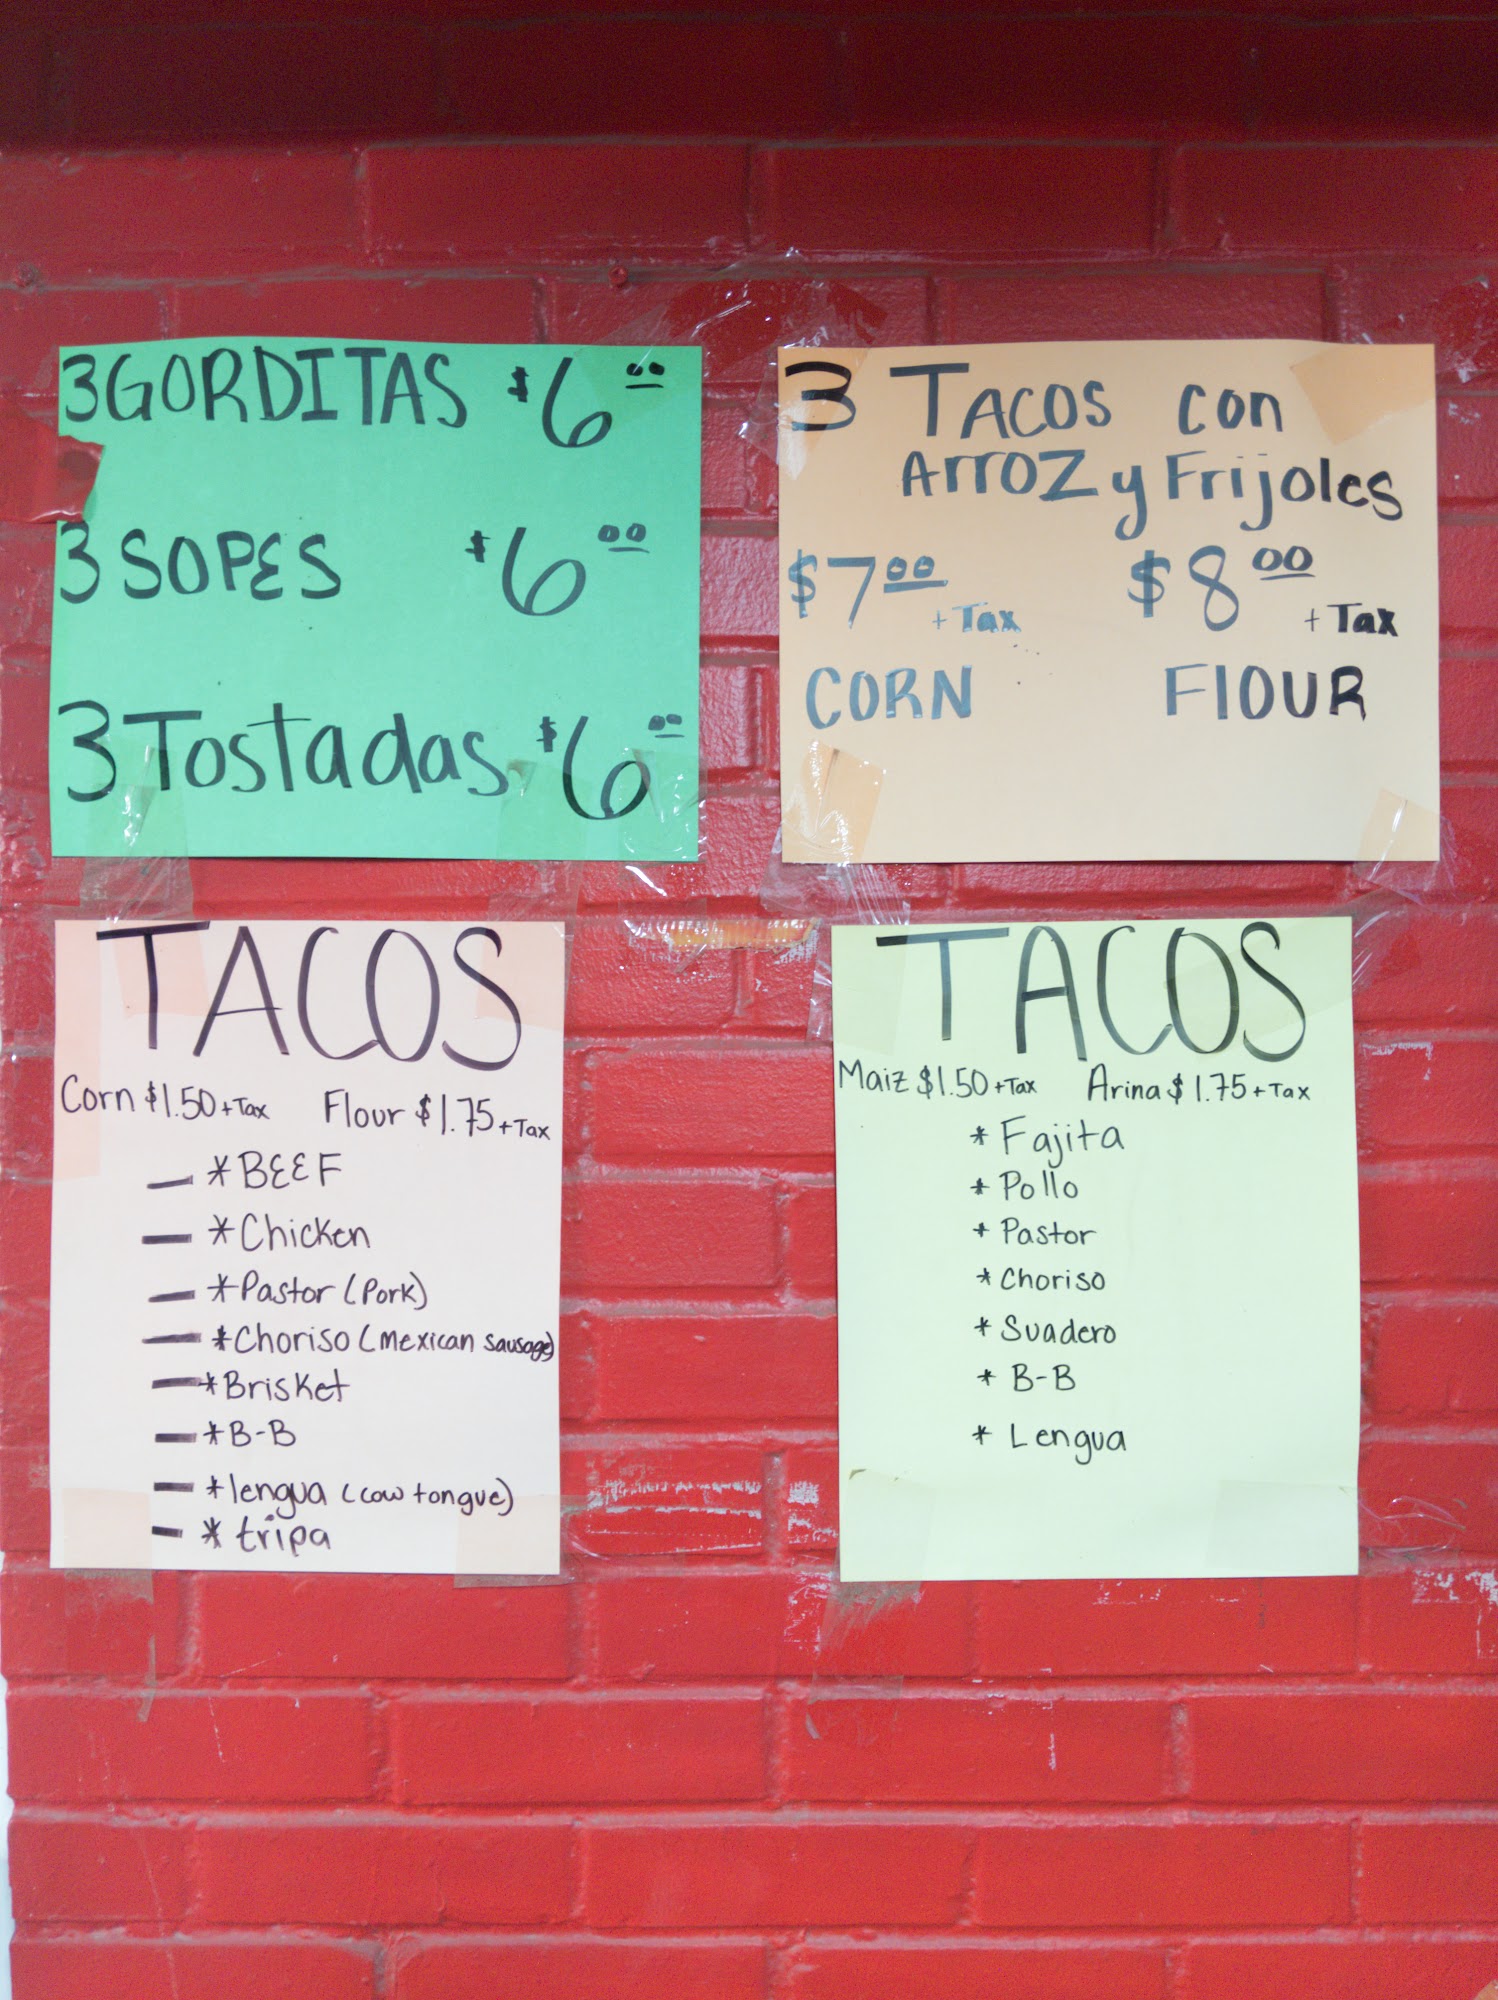 3 GORDITAS $6.00
3 SOPES $6.00
3 Tostadas $6.00
3 TACOS con
Arroz y Frijoles
$7.00 + Tax $8.00 + Tax
CORN FlOUR
TACOS
Corn $1.50 + Tax Flour $1.75 + Tax
- * BEEF
- * Chicken
- * Pastor (Pork)
- * Choriso (Mexican sausage)
- * Brisket
- * B-B
- * lengua (cow tongue)
- * tripa
TACOS
Maiz $1.50 + Tax Arina $1.75 + Tax
* Fajita
* Pollo
* Pastor
* Choriso
* Suadero
* B-B
* Lengua